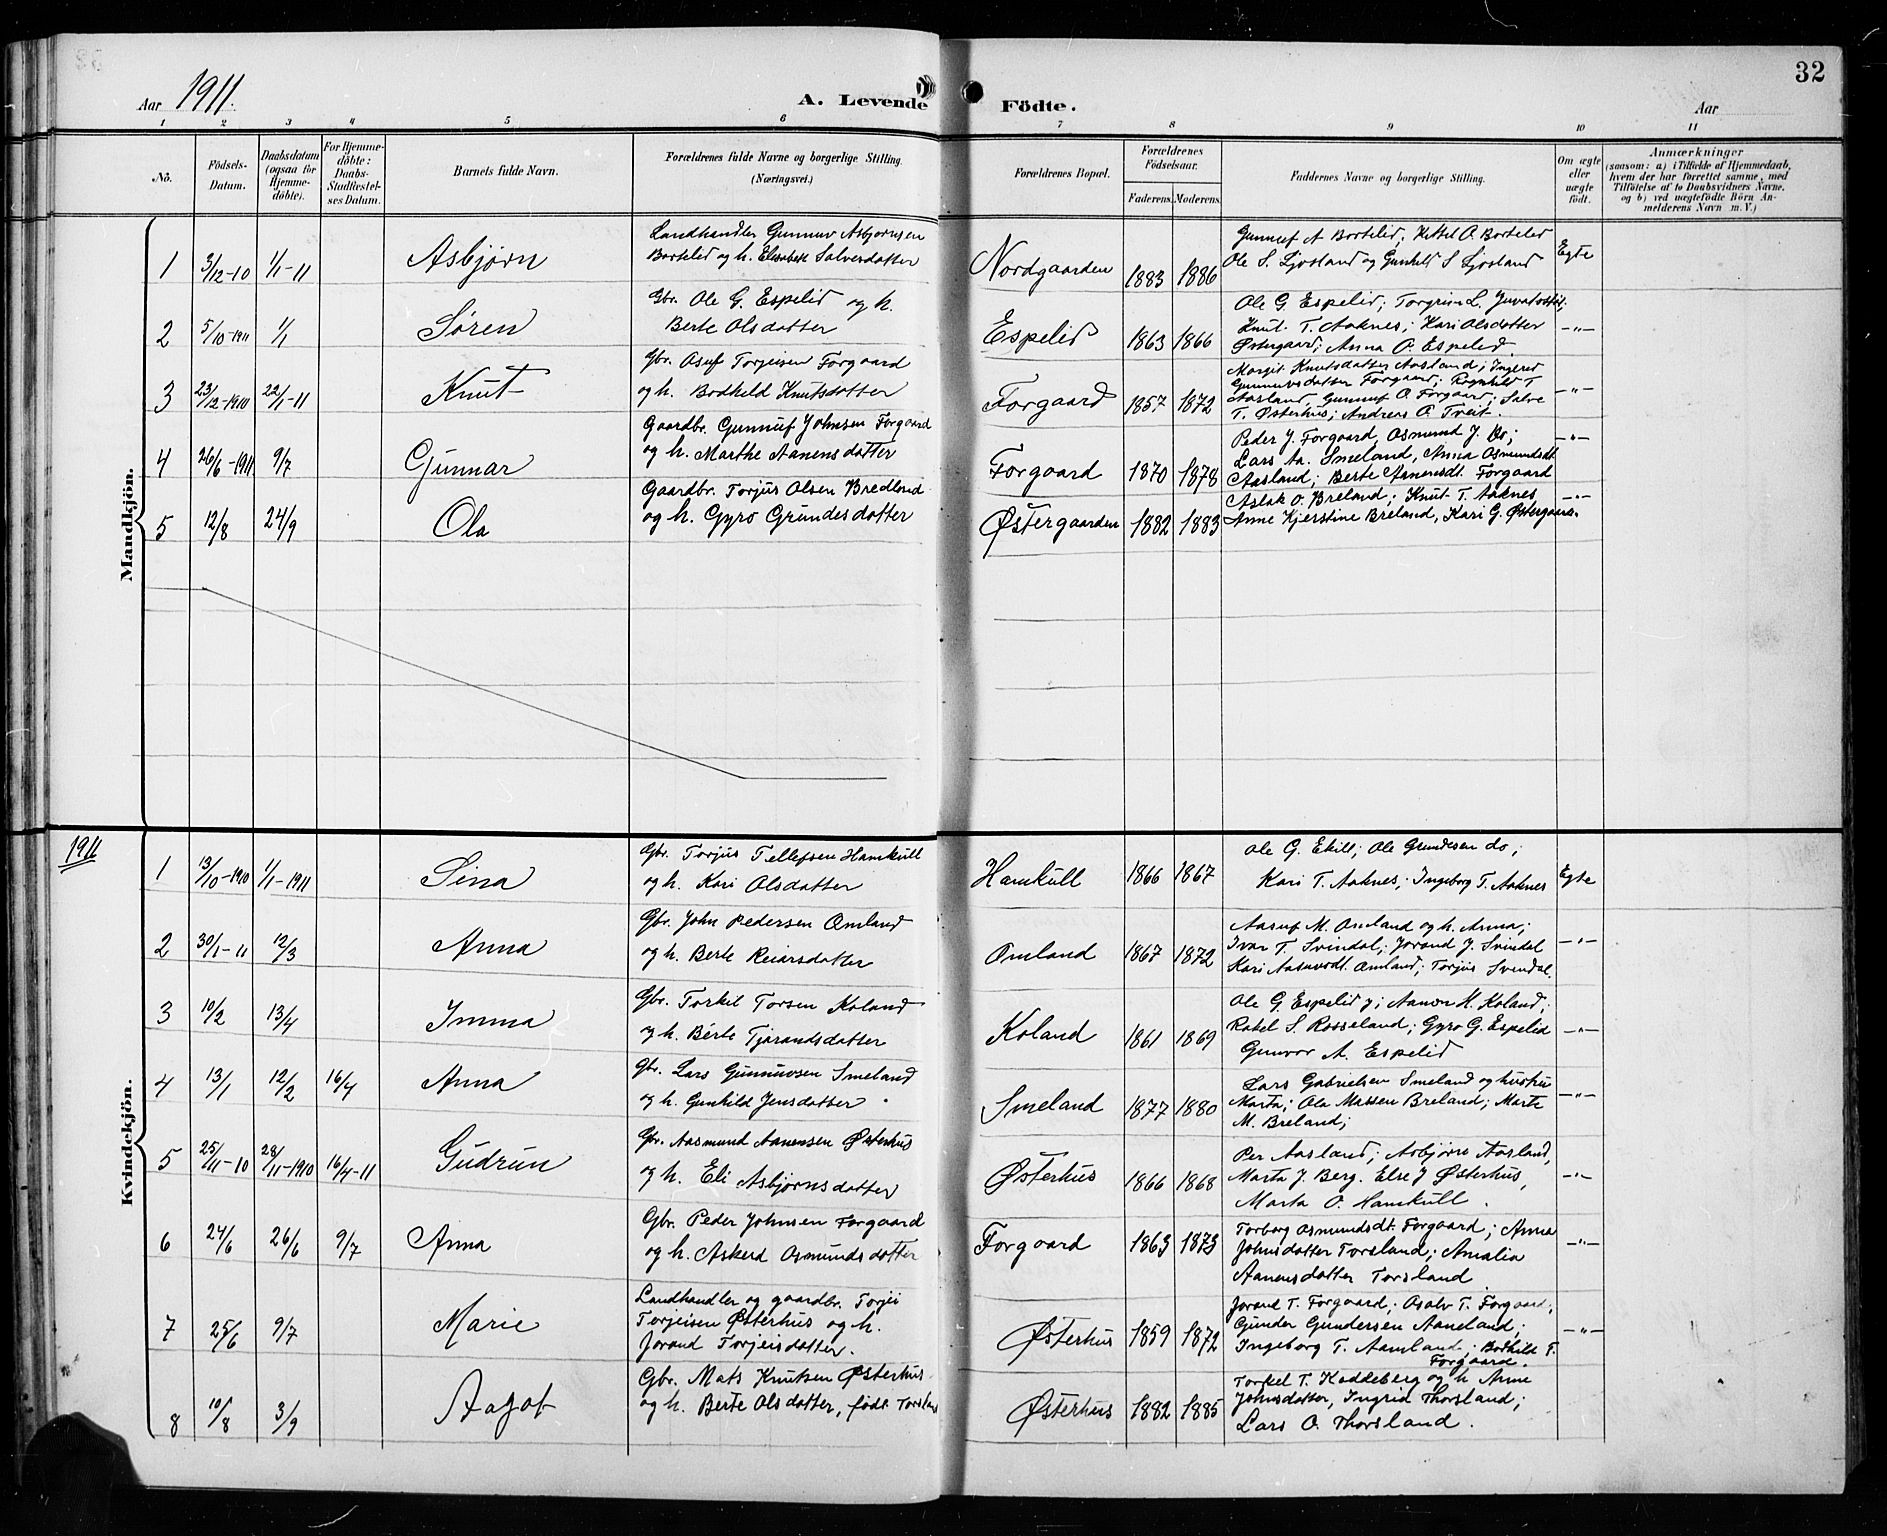 32
Aar 1911.
A. Levende Födte.
Aar
1 2 3 4 5 6 7 8 9 10 11
No.
Födsels-Datum.
Daabsdatum (ogsaa for Hjemme-döbte).
For Hjemme-döbte: Daabs-Stadfæstel-ses Datum.
Barnets fulde Navn.
Forældrenes fulde Navne og borgerlige Stilling. (Næringsvei.)
Forældrenes Bopæl.
Forældrenes Födselsaar.
Faderens. Moderens.
Faddernes Navne og borgerlige Stilling.
Om ægte eller uægte födt.
Anmærkninger
(saasom: a) i Tilfælde af Hjemmedaab, hvem der har forrettet samme, med Tilföielse af to Daabsvidners Navne. og b) ved uægtefödte Börn Anmelderens Navn m. V.)
Mandkjön.
1 3/12-10 1/1-11 Asbjørn
Landhandler Gunnuv Asbjørnsen
Bortelid og h. Elisabeth Salvesdatter
Nordgaarden 1883 1886
Gunnuf A Bortelid; Kittel O. Bortelid
Ole S. Ljosland og Gunhild S Ljosland
Egte
2 5/10-1911 1/1 Søren
Gbr. Ole G. Espelid og h.
Berte Olsdatter
Espelid 1863 1866
Ole G Espelid; Torgrim L.
Knut T. Aaknes; Kari Olsdatter
Østergaard; Anna O. Espelid
-"-
3 23/12-1910 22/1-11 Knut
Gbr. Osuf Torjeisen Forgaard
og h. Bodhild Knutsdatter
Forgaard 1857 1872
Margit Knutsdatter Aasland; Ingered
Gunnuvsdatter Forgaard; Ragnhild T
Aasland, Gunnuf O. Forgaard; Salve
T. Østerhus; Andreas O. Tveit.
-"-
4 26/6-1911 9/7 Gunnar
Gaardbr. Gunnuf Johnsen Forgaard
og h. Marthe Aanensdatter
Forgaard 1870 1878
Peder J. Forgaard, Osmund J. Os;
Lars Aa. Smeland, Anna Osmundsdt.
Aasland; Berte Aanensdt. Forgaard
-"-
5 12/8 24/9 Ola
Gaardbr. Torjus Olsen Bredland
og h. Gyro Grundesdatter
Østergaarden 1882 1883
Aslak O. Breland; Knut T. Aaknes
Anne Kjerstine Breland, Kari G. Østergaard.
-"-
1911
Kvindekjön.
1 13/10-1910 1/1-1911 Sina
Gbr. Torjus Tellefsen Hamkull
og h. Kari Olsdatter
Hamkull 1866 1867
Ole G. Ekill; Ole Grundesen do;
Kari T. Aaknes; Ingeborg T. Aaknes
Egte
2 30/1-11 12/3 Anna
Gbr. John Pedersen Omland
og h. Berte Reiarsdatter
Omland 1867 1872
Aasuf M. Omland og h. Anna;
Ivar T. Svindal; Jorand J. Svindal
Kari Aasuvsdt. Omland; Torjus Svendal.
-"-
3 10/2 13/4 Imma
Gbr. Torkel Torsen Koland
og h. Berte Tjorandsdatter
Koland 1861 1869
Ole G. Espelid; Aanon M. Koland;
Rakel S. Rosseland; Gyro G. Espelid
Gunvor A. Espelid
-"-
4 13/1 12/2 16/4 Anna
Gbr. Lars Gunnuvsen Smeland
og h. Gunhild Jensdatter
Smeland 1877 1880
Lars Gabrielsen Smeland og hustru
Marta; Ola Matsen Breland; Marte
M. Breland;
-"-
5 25/11-10 28/11-1910 16/4-11 Gudrun
Gbr. Aasmund Aanensen Østerhus
og h. Eli Asbjørnsdatter
Østerhus 1866 1868
Per Aasland; Asbjørn Aasland,
Marta J. Berg. Else J Østerhus,
Marta O. Hamkull.
-"-
6 24/6 26/6 9/7 Anna
Gbr. Peder Johnsen Forgaard
og h. Askerd Osmundsdatter
Forgaard 1863 1873
Torborg Osmundsdt. Forgaard; Anna
Johnsdatter Torsland; Amalia
Aanensdatter Torsland
-"-
7 25/6 9/7 Marie
Landhandler og gaardbr. Torjei
Torjeisen Østerhus og h.
Jorand Torjeisdatter.
Østerhus 1859 1872
Jorand T. Forgaard; Osalv T. Forgaard;
Gunder Gundersen Aamland;
Ingeborg T. Aamland; Bodhild T.
Forgaard.
-"-
8 10/8 3/9 Aagot
Gbr. Mats Knutsen Østerhus
og h. Berte Olsdatter, født Torsland
Østerhus 1882 1885
Torkel T. Haddeberg og h Anne
Johnsdatter, Ingrid Thorsland;
Lars O. Thorsland.